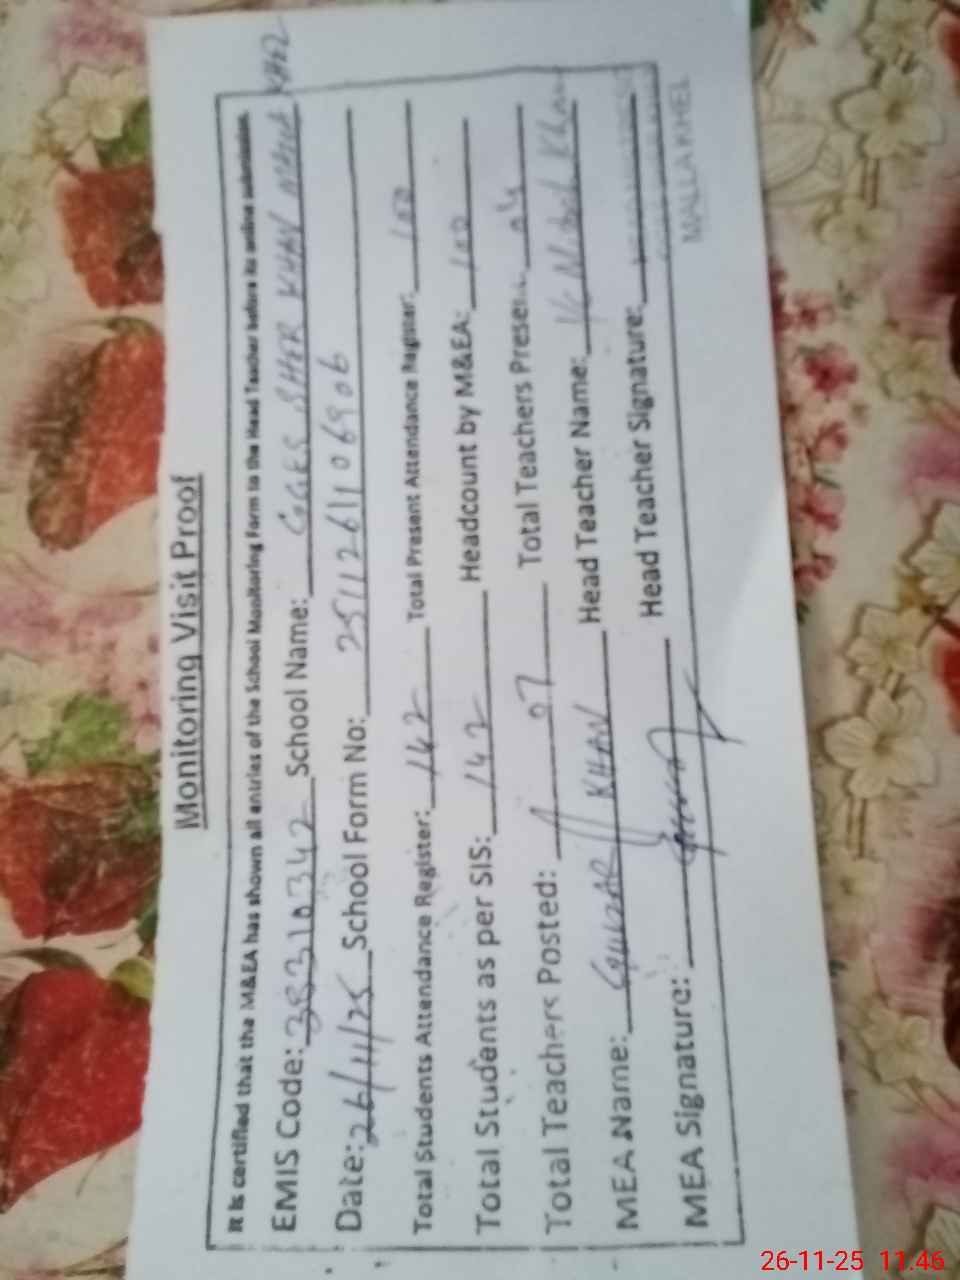 Monitoring Visit Proof
It is certified that the M&EA has shown all entries of the School Monitoring Form to the Head Teacher before its online submission.
EMIS Code: 38310342 School Name: GGES SHER KHAN MALLA KHEL
Date: 26/11/25 School Form No: 2511261106906
Total Students Attendance Register: 142 Total Present Attendance Register: 100
Total Students as per SIS: 142 Headcount by M&EA: 100
Total Teachers Posted: 07 Total Teachers Present: 04
MEA Name: KHAN Head Teacher Name: I/c Khan
MEA Signature: Head Teacher Signature:
MALLA KHEL
26-11-25 11:46